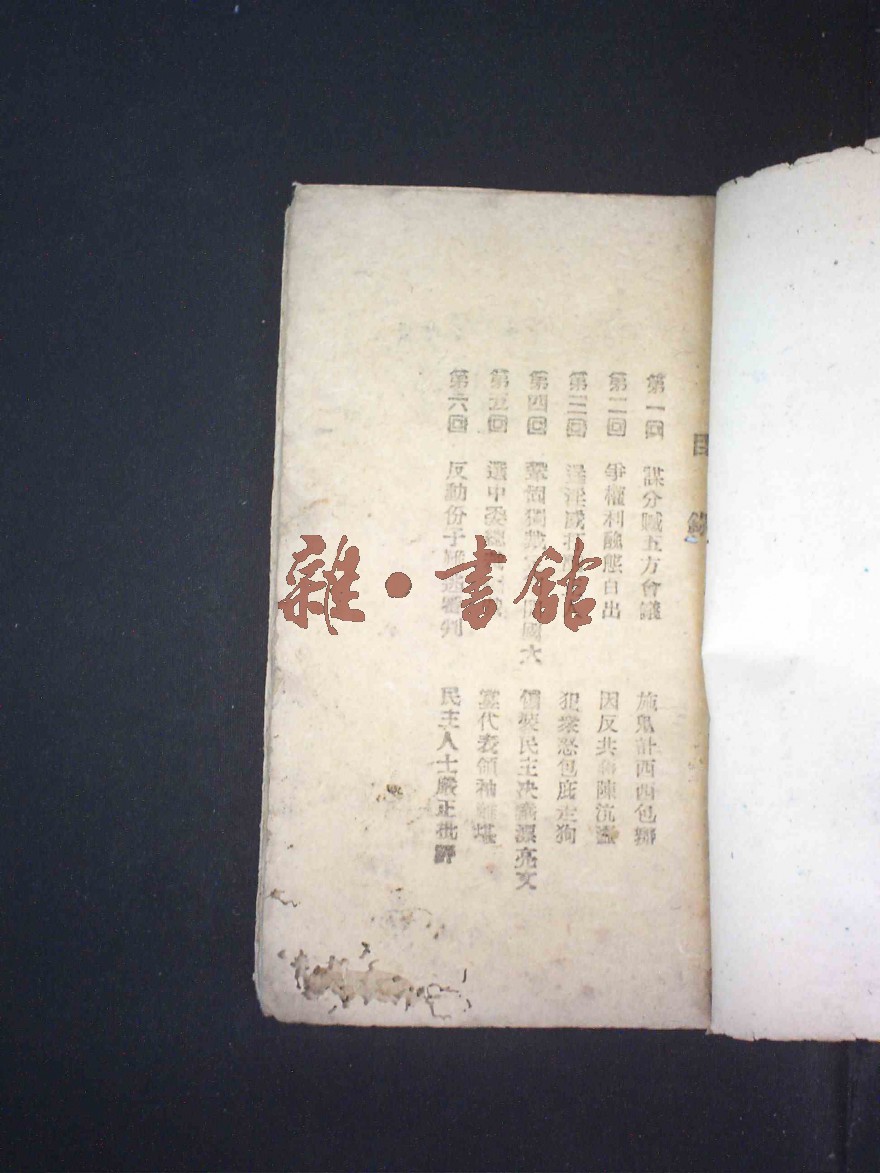 目錄
第一回 謀分贓五方會議 施鬼計西西包辦
第二回 爭權利醜態自出 因反共 陳沆
第三回 逞淫威 犯衆怒包庇走狗
第四回 鞏固獨裁 國大 偽裝民主决 漂亮文
第五回 選中委 黨代表領袖難堪
第六回 反動份子 審判 民主人士嚴正批評
雜·書館